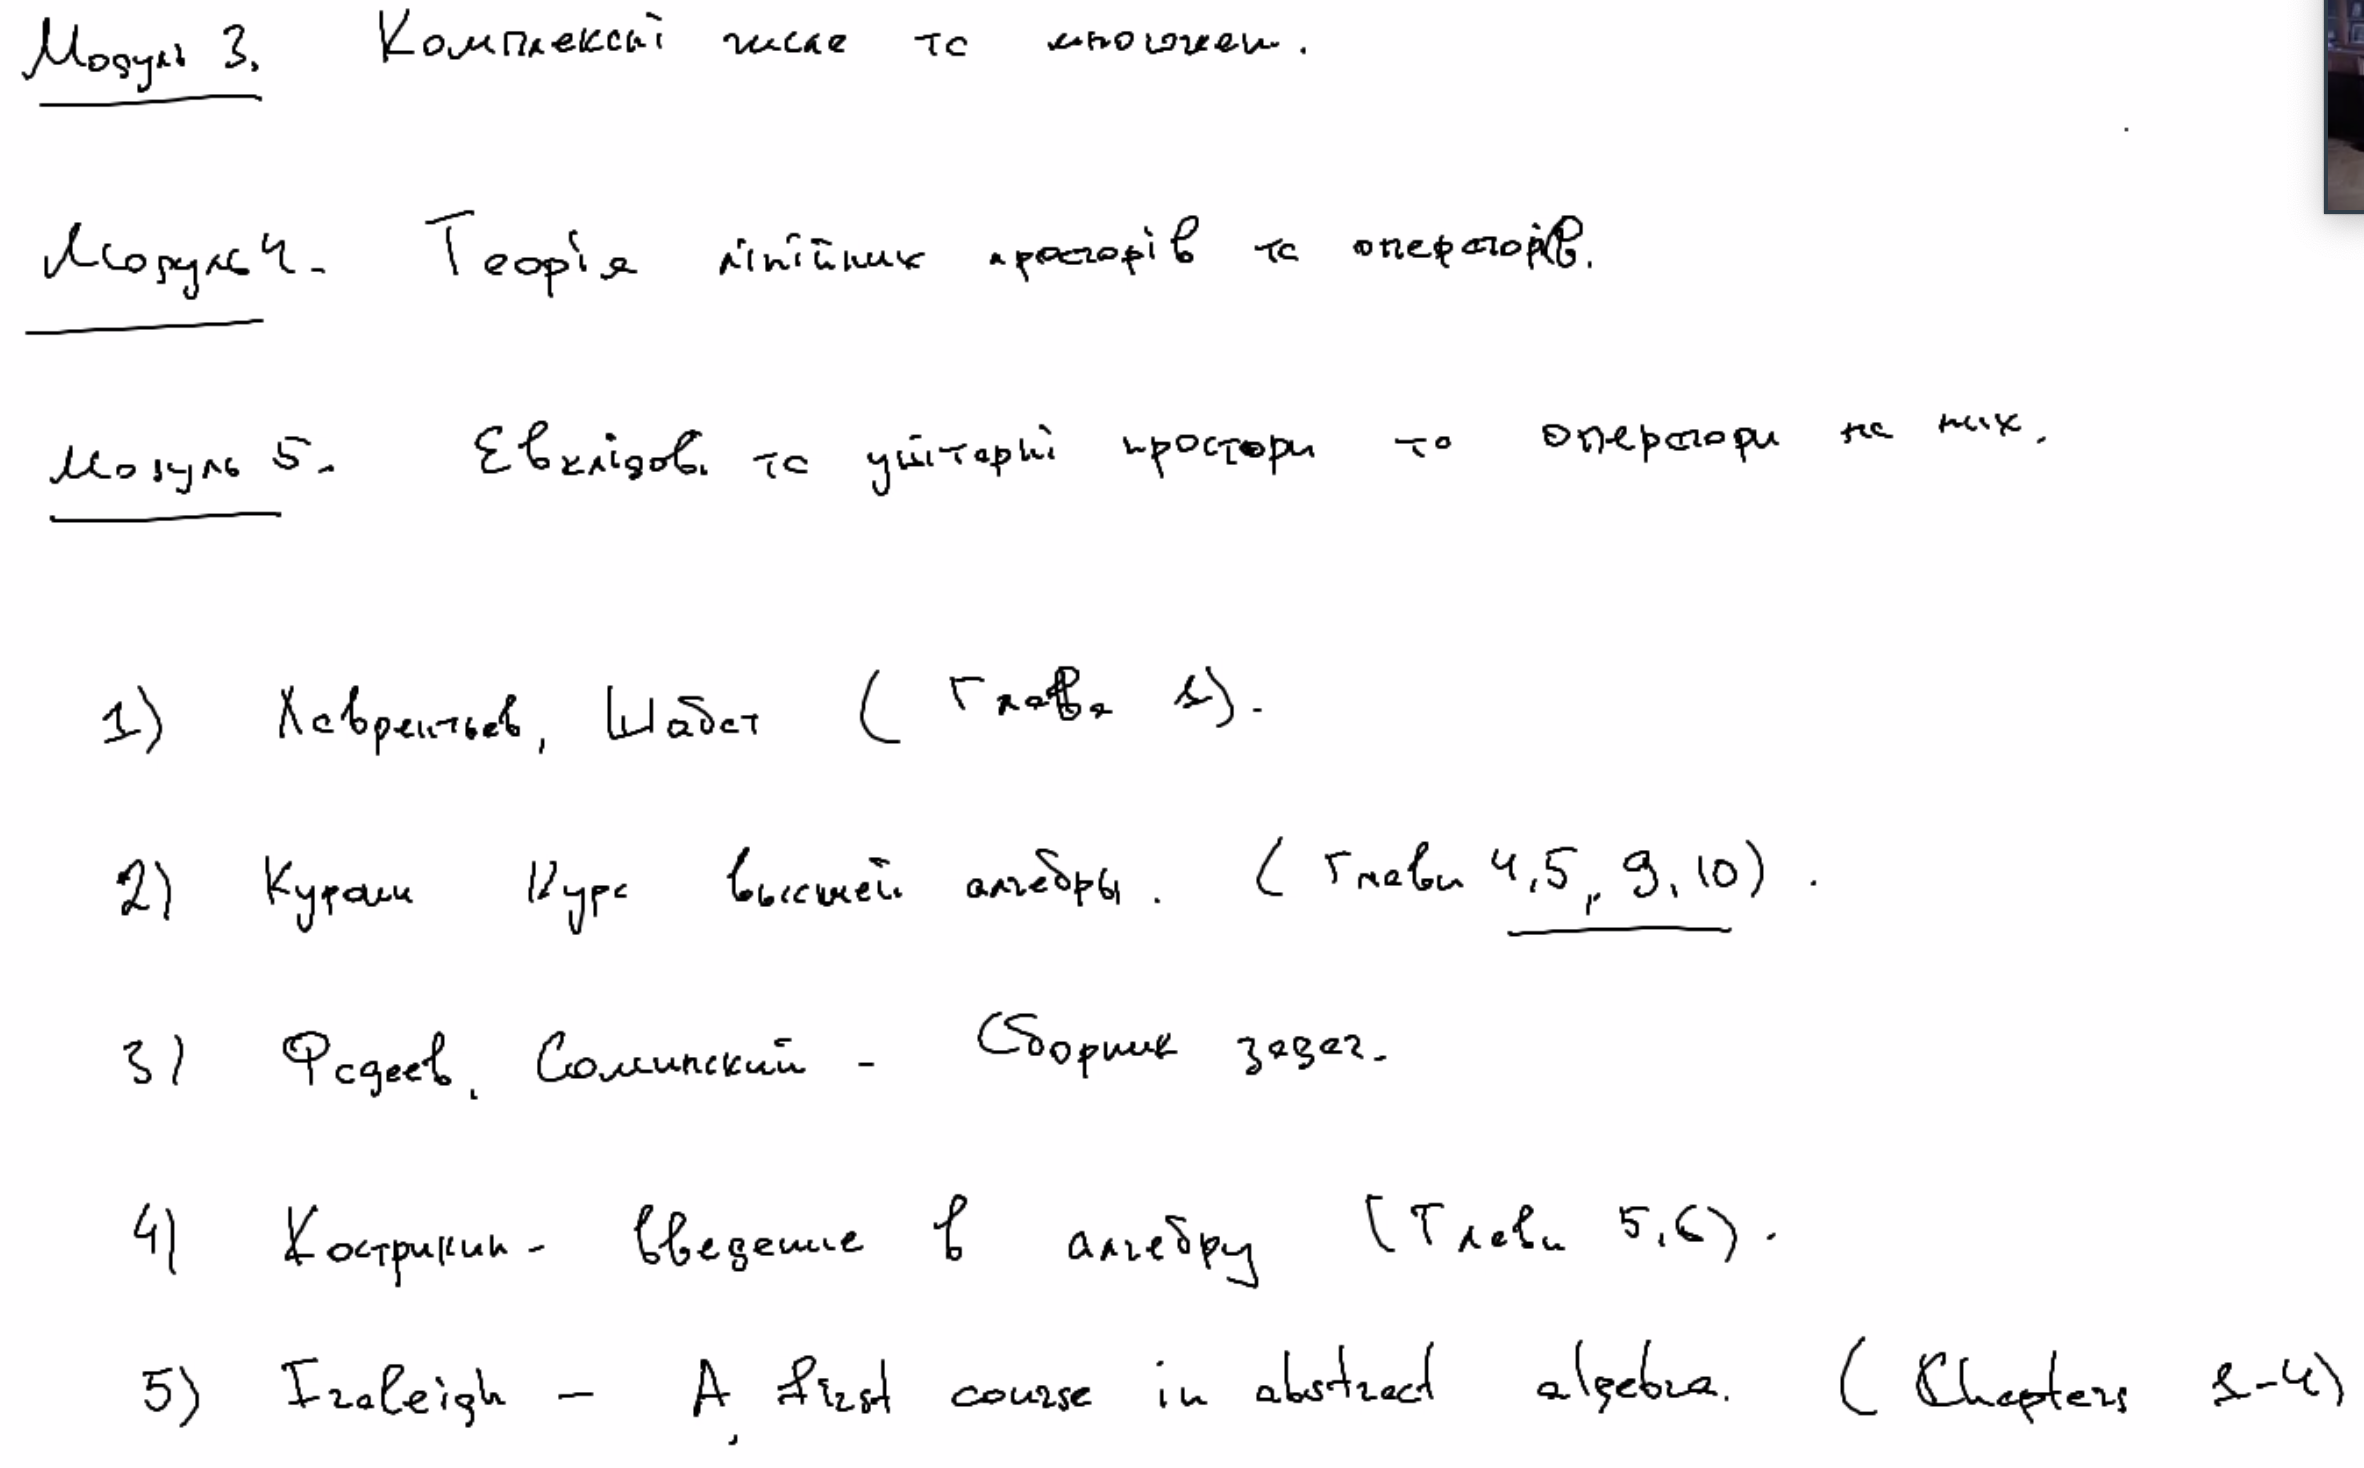 Модуль 3. Комплексні числа та многочлен.
Модуль 4. Теорія лінійних просторів та операторів.
Модуль 5. Евклідові та унітарні простори та оператори на них.
1) Лаврентьев, Шабат (Глава 1).
2) Курош Курс высшей алгебры. (Глави 4,5, 9, 10).
3) Фадеев, Соминский - Сборник задач.
4) Кострикин - Введение в алгебру (Глави 5,6).
5) Fraleigh - A first course in abstract algebra. (Chapters 1-4)